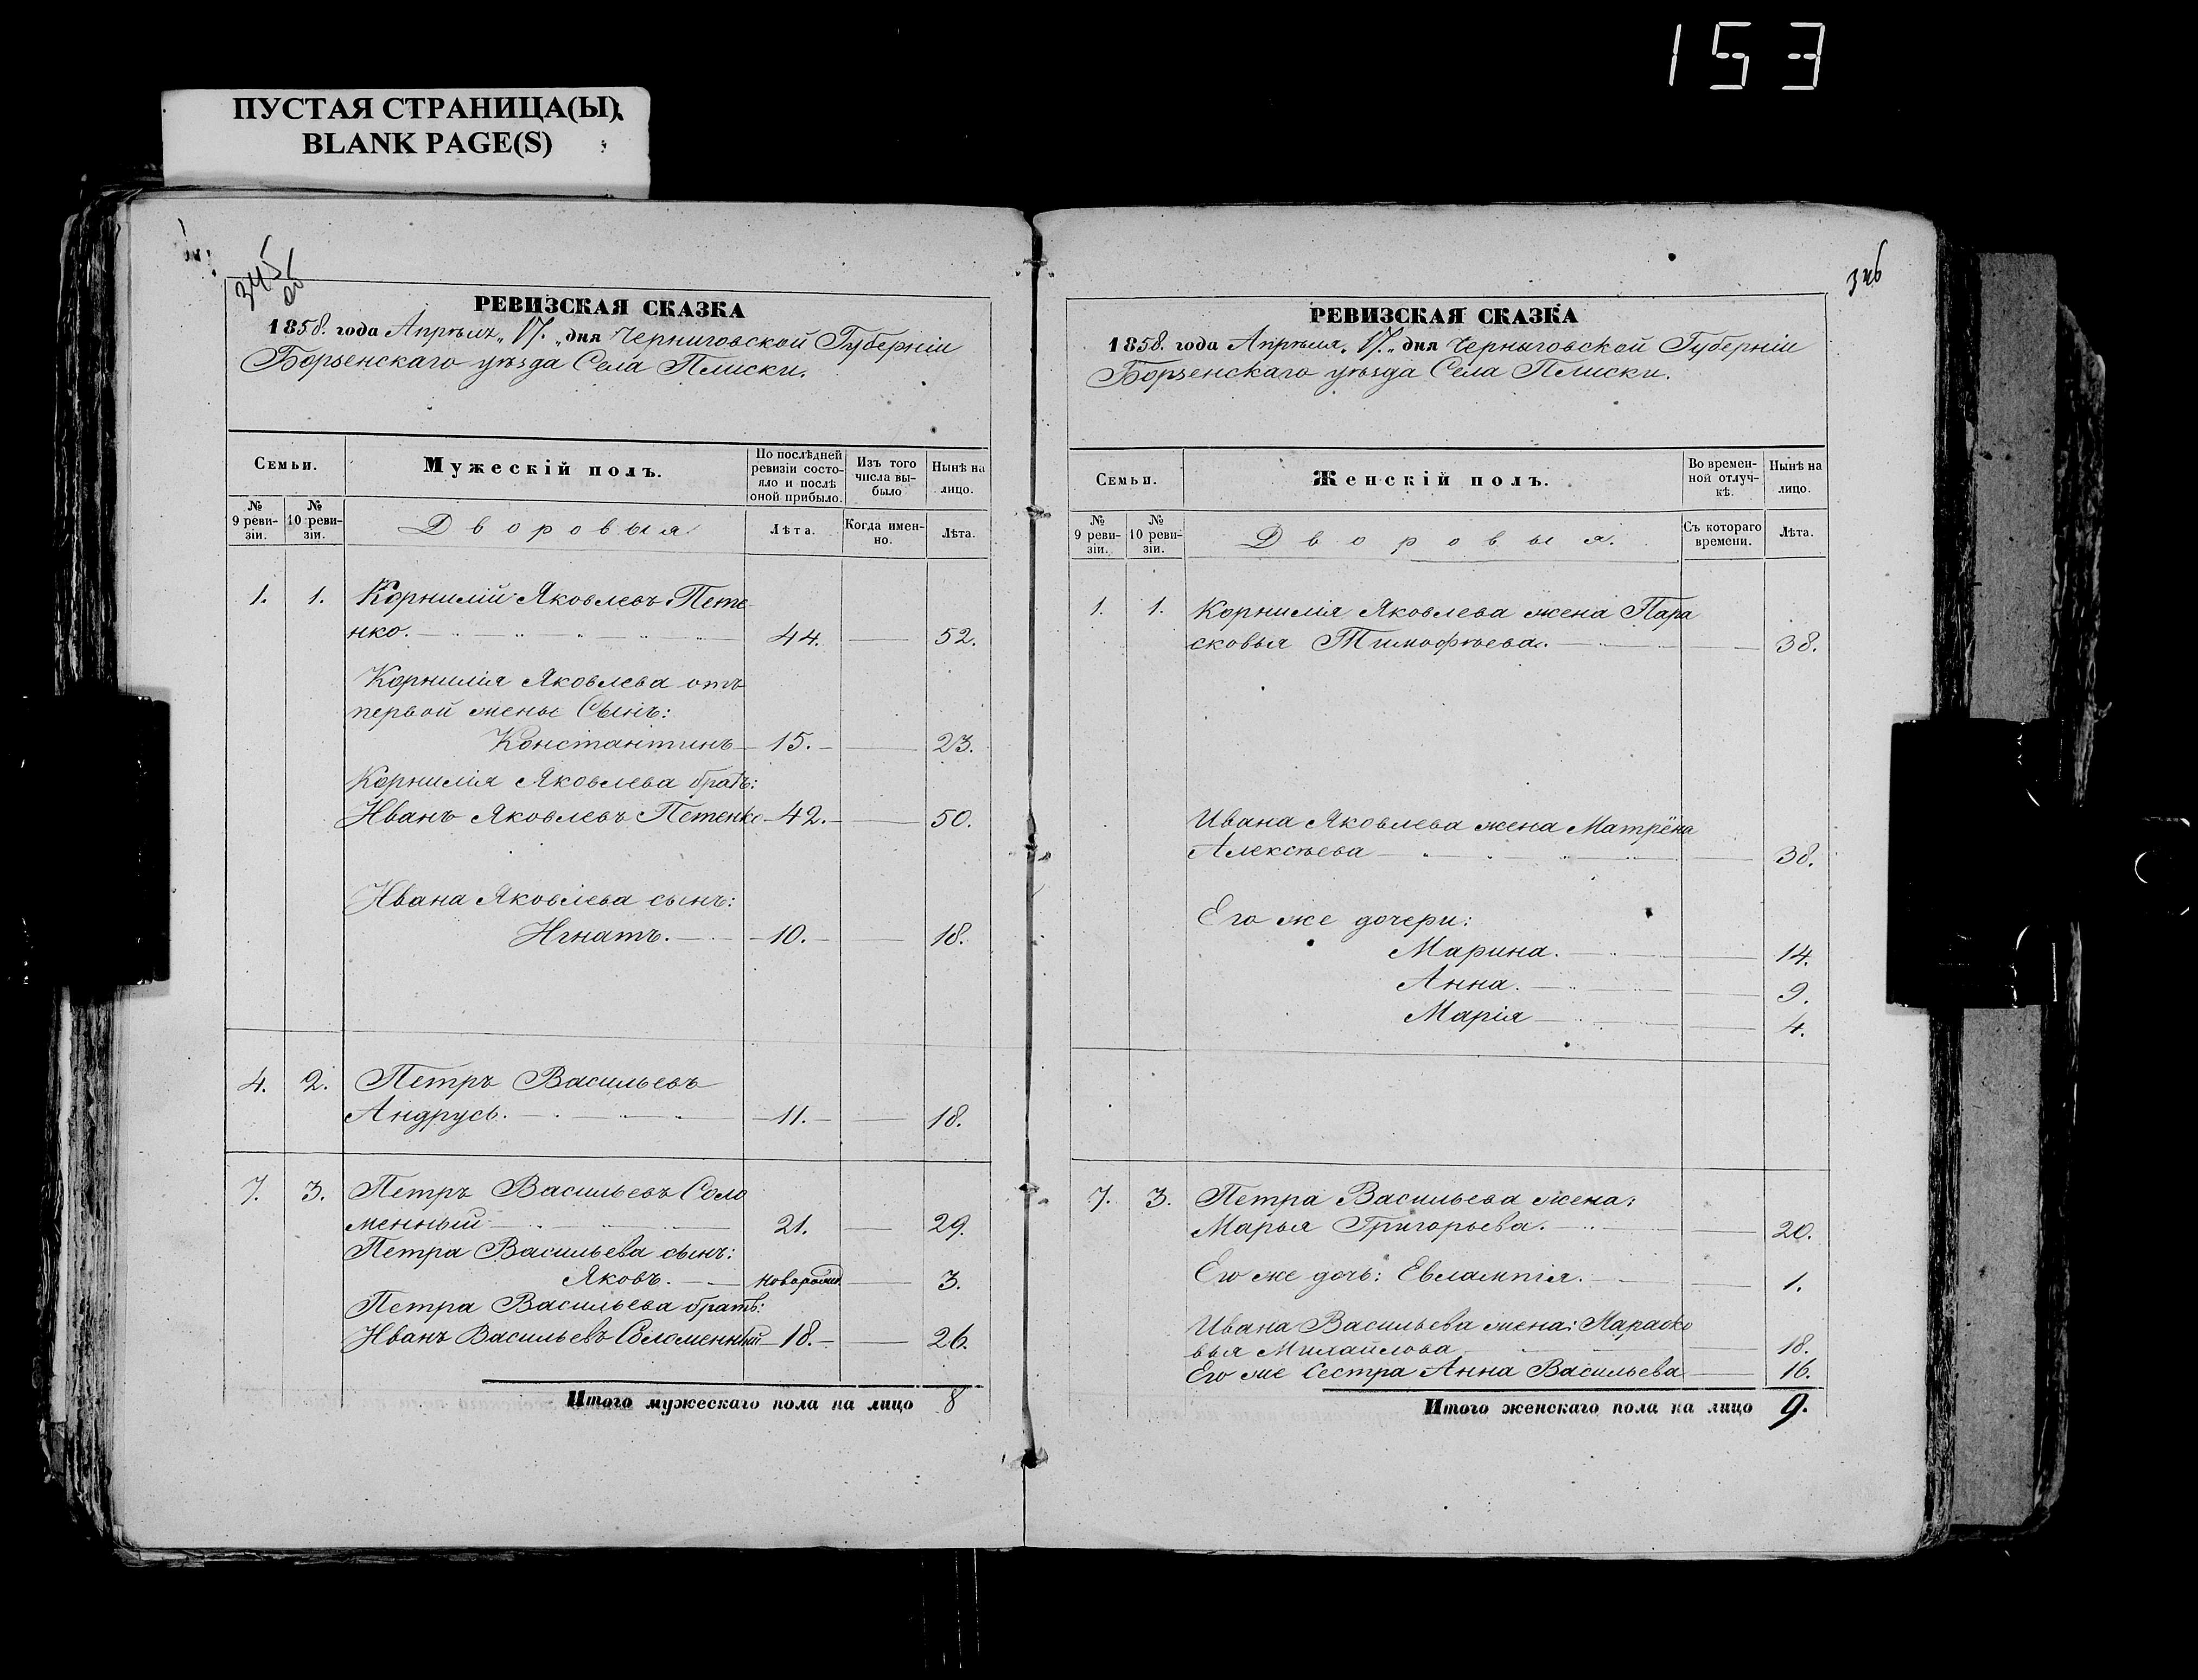 153
ПУСТАЯ СТРАНИЦА(Ы)
BLANK PAGE(S)
345
об
РЕВИЗСКАЯ СКАЗКА
1858. года Апрѣля „17.„ дня Черниговской Губерніи
Борзенскаго уѣзда Села Плиски.
Семьи.
Мужескій полъ.
По послѣдней ревизіи состояло и послѣ оной прибыло.
Изъ того числа выбыло
Нынѣ на лицо.
№ 9 ревизіи.
№ 10 ревизіи.
Дворовыя
Лѣта.
Когда именно.
Лѣта.
1. 1. Корнилій Яковлевъ Пете
нко. 44. 52.
Корнилія Яковлева отъ
первой жены Сынъ:
Константинъ 15. 23.
Корнилія Яковлева братъ:
Иванъ Яковлевъ Петенко 42. 50.
Ивана Яковлева сынъ:
Игнатъ. 10. 18.
4. 2. Петръ Васильевъ
Андрусь. 11. 18.
7. 3. Петръ Васильевъ Соло
менный 21. 29.
Петра Васильева сынъ:
Яковъ. 3.
Петра Васильева братъ:
Иванъ Васильевъ Соломенный 18. 26.
Итого мужескаго пола на лицо 8
346
РЕВИЗСКАЯ СКАЗКА
1858. года Апрѣля „17.„ дня Черниговской Губерніи
Борзенскаго уѣзда Села Плиски.
Семьи.
Женскій полъ.
Во временной отлучкѣ.
Нынѣ на лицо.
№ 9 ревизіи.
№ 10 ревизіи.
Дворовыя.
Съ котораго времени.
Лѣта.
1. 1. Корнилія Яковлева жена Пара
сковья Тимофѣева. 38.
Ивана Яковлева жена Матрёна
Алексѣева 38.
Его же дочери:
Марина. 14.
Анна. 9.
Марія 4.
7. 3. Петра Васильева жена:
Марья Григорьева. 20.
Его же дочь: Евлампія. 1.
Ивана Васильева жена: Параско
вья Михайлова 18.
Его же Сестра Анна Васильева 16.
Итого женскаго пола на лицо 9.